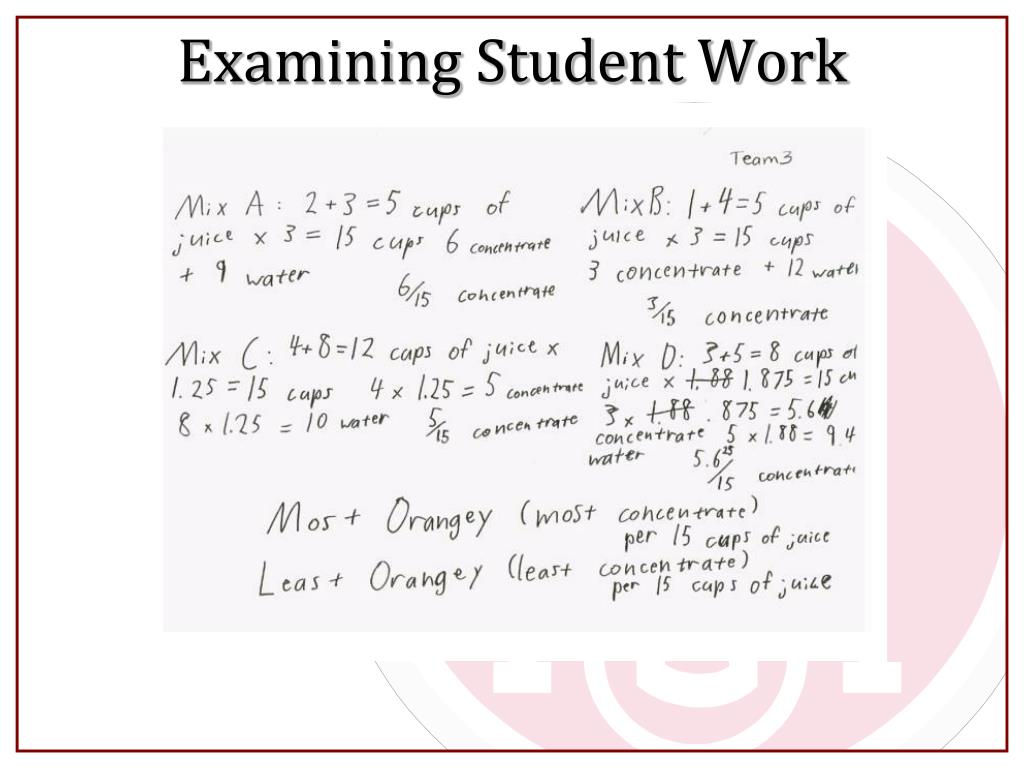 Examining Student Work
Team3
Mix A: 2+3=5 cups of
juice x 3 = 15 cups 6 concentrate
+ 9 water
6/15 concentrate
Mix B: 1+4=5 cups of
juice x 3 = 15 cups
3 concentrate + 12 water
3/15 concentrate
Mix C: 4+8=12 cups of juice x
1.25 = 15 cups 4 x 1.25 = 5 concentrate
8 x 1.25 = 10 water 5/15 concentrate
Mix D: 3+5=8 cups of
juice x 1.88 1.875 = 15 cu
3 x 1.88 .875 = 5.6
concentrate 5 x 1.88 = 9.4
water 5.625/15 concentrate
Most Orangey (most concentrate)
per 15 cups of juice
Least Orangey (least concentrate)
per 15 cups of juice